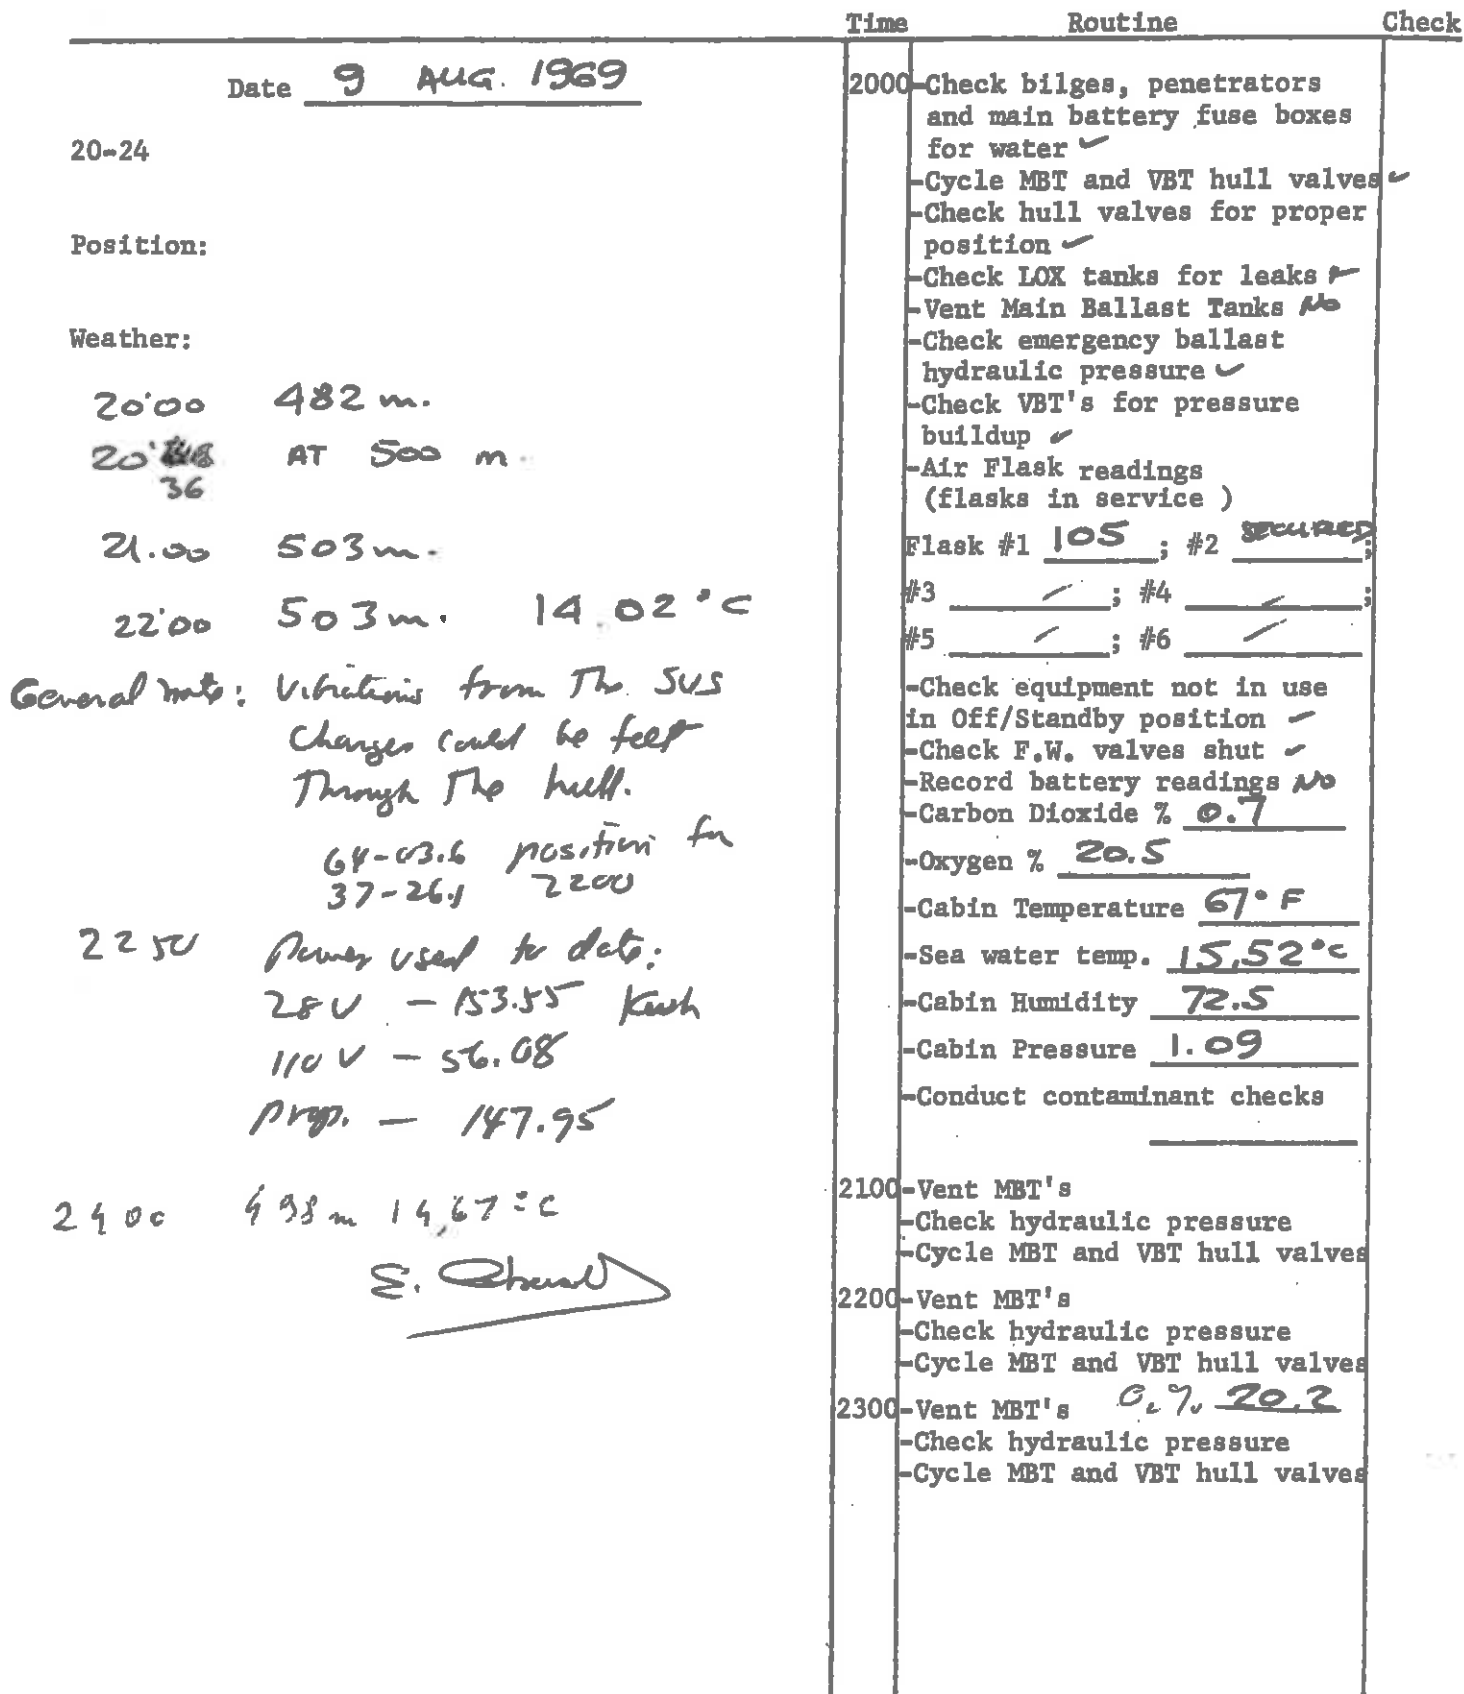 Time Routine Check
Date 9 AUG. 1969
20-24
Position:
Weather:
20'00 482 m.
20' AT 500 m.
36
21.00 503 m.
22'00 503 m. 14.02°C
General note: Vibrations from The SUS
Charges could be felt
Through The hull.
64-03.6 position for
37-26.1 2200
2250 Power used to date:
28V - 153.55 Kwh
110 V - 56.08
Prop. - 147.95
2400 498 m 14,67°C
E.
2000-Check bilges, penetrators
and main battery fuse boxes
for water ✓
-Cycle MBT and VBT hull valves ✓
-Check hull valves for proper
position ✓
-Check LOX tanks for leaks ✓
-Vent Main Ballast Tanks No
-Check emergency ballast
hydraulic pressure ✓
-Check VBT's for pressure
buildup ✓
-Air Flask readings
(flasks in service )
Flask #1 105 ; #2 SECURED;
#3 / ; #4 / ;
#5 / ; #6 /
-Check equipment not in use
in Off/Standby position ✓
-Check F.W. valves shut ✓
-Record battery readings No
-Carbon Dioxide % 0.7
-Oxygen % 20.5
-Cabin Temperature 67° F
-Sea water temp. 15,52°C
-Cabin Humidity 72.5
-Cabin Pressure 1.09
-Conduct contaminant checks
2100-Vent MBT's
-Check hydraulic pressure
-Cycle MBT and VBT hull valves
2200-Vent MBT's
-Check hydraulic pressure
-Cycle MBT and VBT hull valves
2300-Vent MBT's O2 % 20.2
-Check hydraulic pressure
-Cycle MBT and VBT hull valves